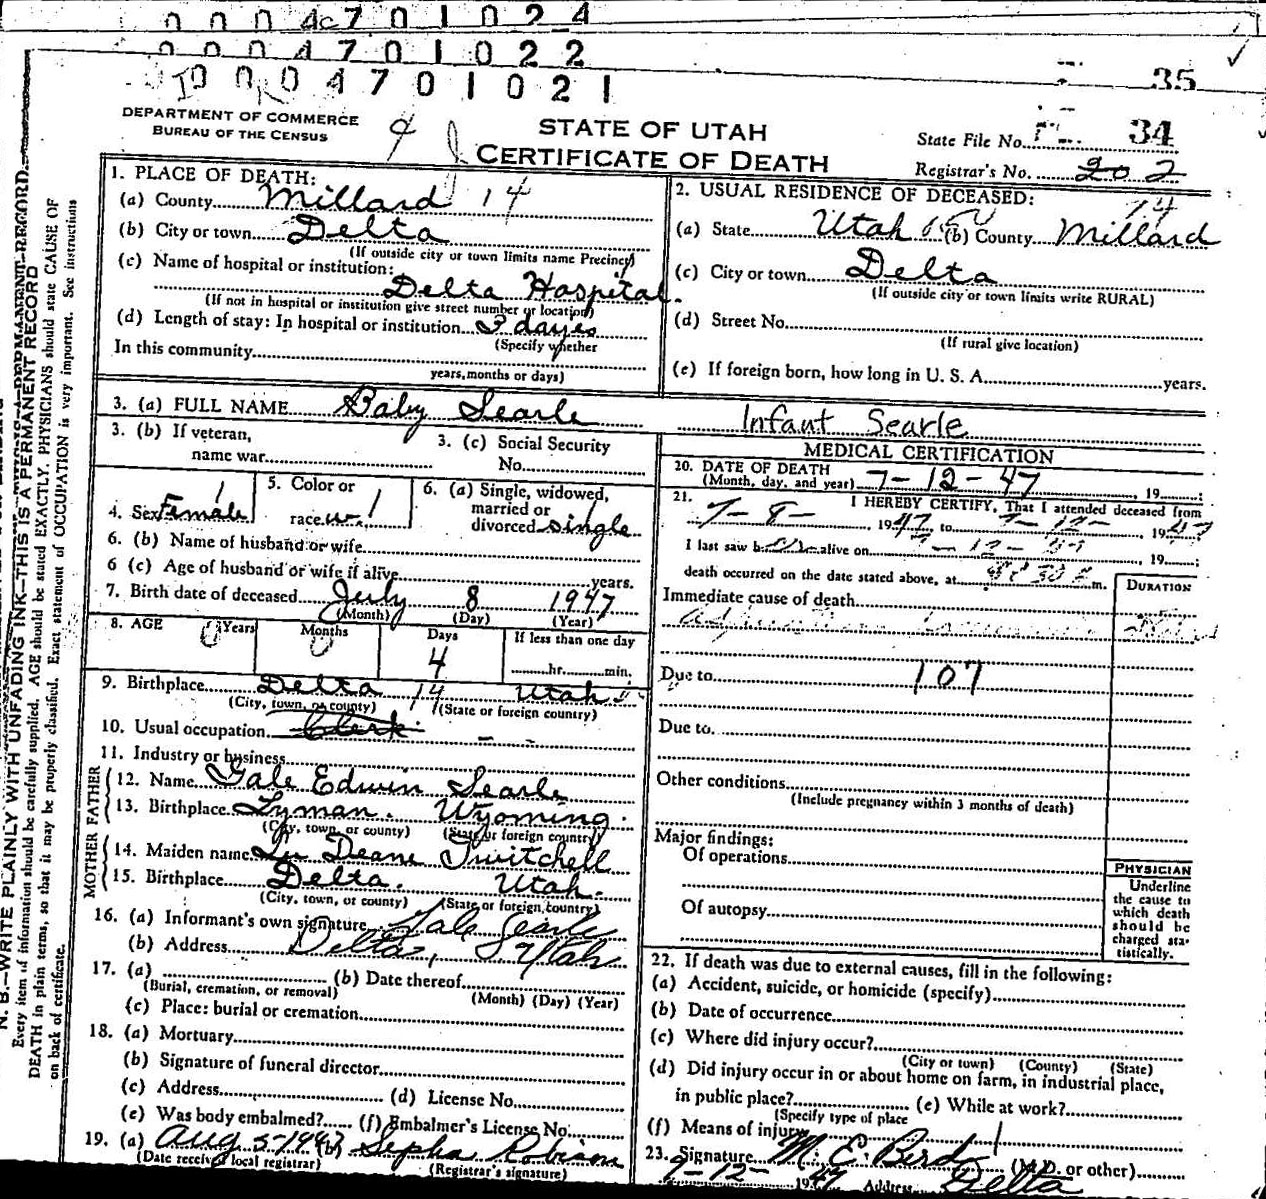 0 0 0 4 7 0 1 0 2 4
0 0 0 4 7 0 1 0 2 2
35
0 0 0 4 7 0 1 0 2 1
DEPARTMENT OF COMMERCE
BUREAU OF THE CENSUS
STATE OF UTAH
CERTIFICATE OF DEATH
State File No. 34
Registrar's No. 202
1. PLACE OF DEATH:
(a) County Millard 14
(b) City or town Delta
(If outside city or town limits name Precinct)
(c) Name of hospital or institution:
Delta Hospital.
(If not in hospital or institution give street number or location)
(d) Length of stay: In hospital or institution 3 dayes
(Specify whether
In this community
years, months or days)
2. USUAL RESIDENCE OF DECEASED:
14
(a) State Utah (b) County Millard
(c) City or town Delta
(If outside city or town limits write RURAL)
(d) Street No.
(If rural give location)
(e) If foreign born, how long in U. S. A. years.
3. (a) FULL NAME Baby Searle Infant Searle
3. (b) If veteran,
name war
3. (c) Social Security
No.
4. Sex Female 1
5. Color or
race w. 1
6. (a) Single, widowed,
married or
divorced single 1
6. (b) Name of husband or wife
6 (c) Age of husband or wife if alive years.
7. Birth date of deceased July 8 1947
(Month) (Day) (Year)
8. AGE Years Months Days If less than one day
0 0 4 hr. min.
9. Birthplace Delta 14 Utah
(City, town, or county) (State or foreign country)
10. Usual occupation Clerk - -
11. Industry or business
FATHER
12. Name Gale Edwin Searle
13. Birthplace Lyman. Wyoming.
(City, town, or county) (State or foreign country)
MOTHER
14. Maiden name Lu Deane Twitchell
15. Birthplace Delta. Utah.
(City, town, or county) (State or foreign country)
16. (a) Informant's own signature Gale Searle
(b) Address Delta, Utah
17. (a) (b) Date thereof
(Burial, cremation, or removal) (Month) (Day) (Year)
(c) Place: burial or cremation
18. (a) Mortuary
(b) Signature of funeral director
(c) Address (d) License No.
(e) Was body embalmed? (f) Embalmer's License No.
19. (a) Aug 5-1947 (b) Sepha Robison
(Date received local registrar) (Registrar's signature)
MEDICAL CERTIFICATION
20. DATE OF DEATH
(Month, day, and year) 7-12-47, 19
21. I HEREBY CERTIFY, That I attended deceased from
7-8- 1947 to 7-12- 1947
I last saw h er alive on 7-12-47, 19
death occurred on the date stated above, at m.
DURATION
Immediate cause of death
Due to 107
Due to
Other conditions
(Include pregnancy within 3 months of death)
Major findings:
Of operations
Of autopsy
PHYSICIAN
Underline
the cause to
which death
should be
charged sta-
tistically.
22. If death was due to external causes, fill in the following:
(a) Accident, suicide, or homicide (specify)
(b) Date of occurrence
(c) Where did injury occur?
(City or town) (County) (State)
(d) Did injury occur in or about home on farm, in industrial place,
in public place? (e) While at work?
(Specify type of place
(f) Means of injury
23. Signature M. E. Bird (M.D. or other)
7-12- 1947 Address Delta
N. B.—WRITE PLAINLY WITH UNFADING INK—THIS IS A PERMANENT RECORD
Every item of information should be carefully supplied. AGE should be stated EXACTLY. PHYSICIANS should state CAUSE OF
DEATH in plain terms, so that it may be properly classified. Exact statement of OCCUPATION is very important. See instructions
on back of certificate.